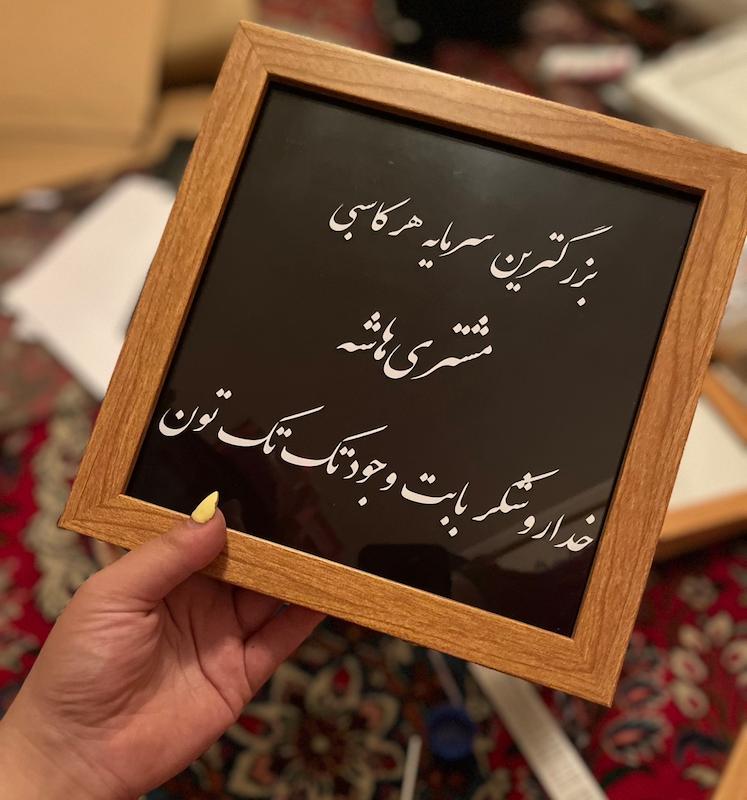 بزرگترین سرمایه هر کاسبی
مشتری هاشه
خدارو شکر بابت وجود تک تک تون